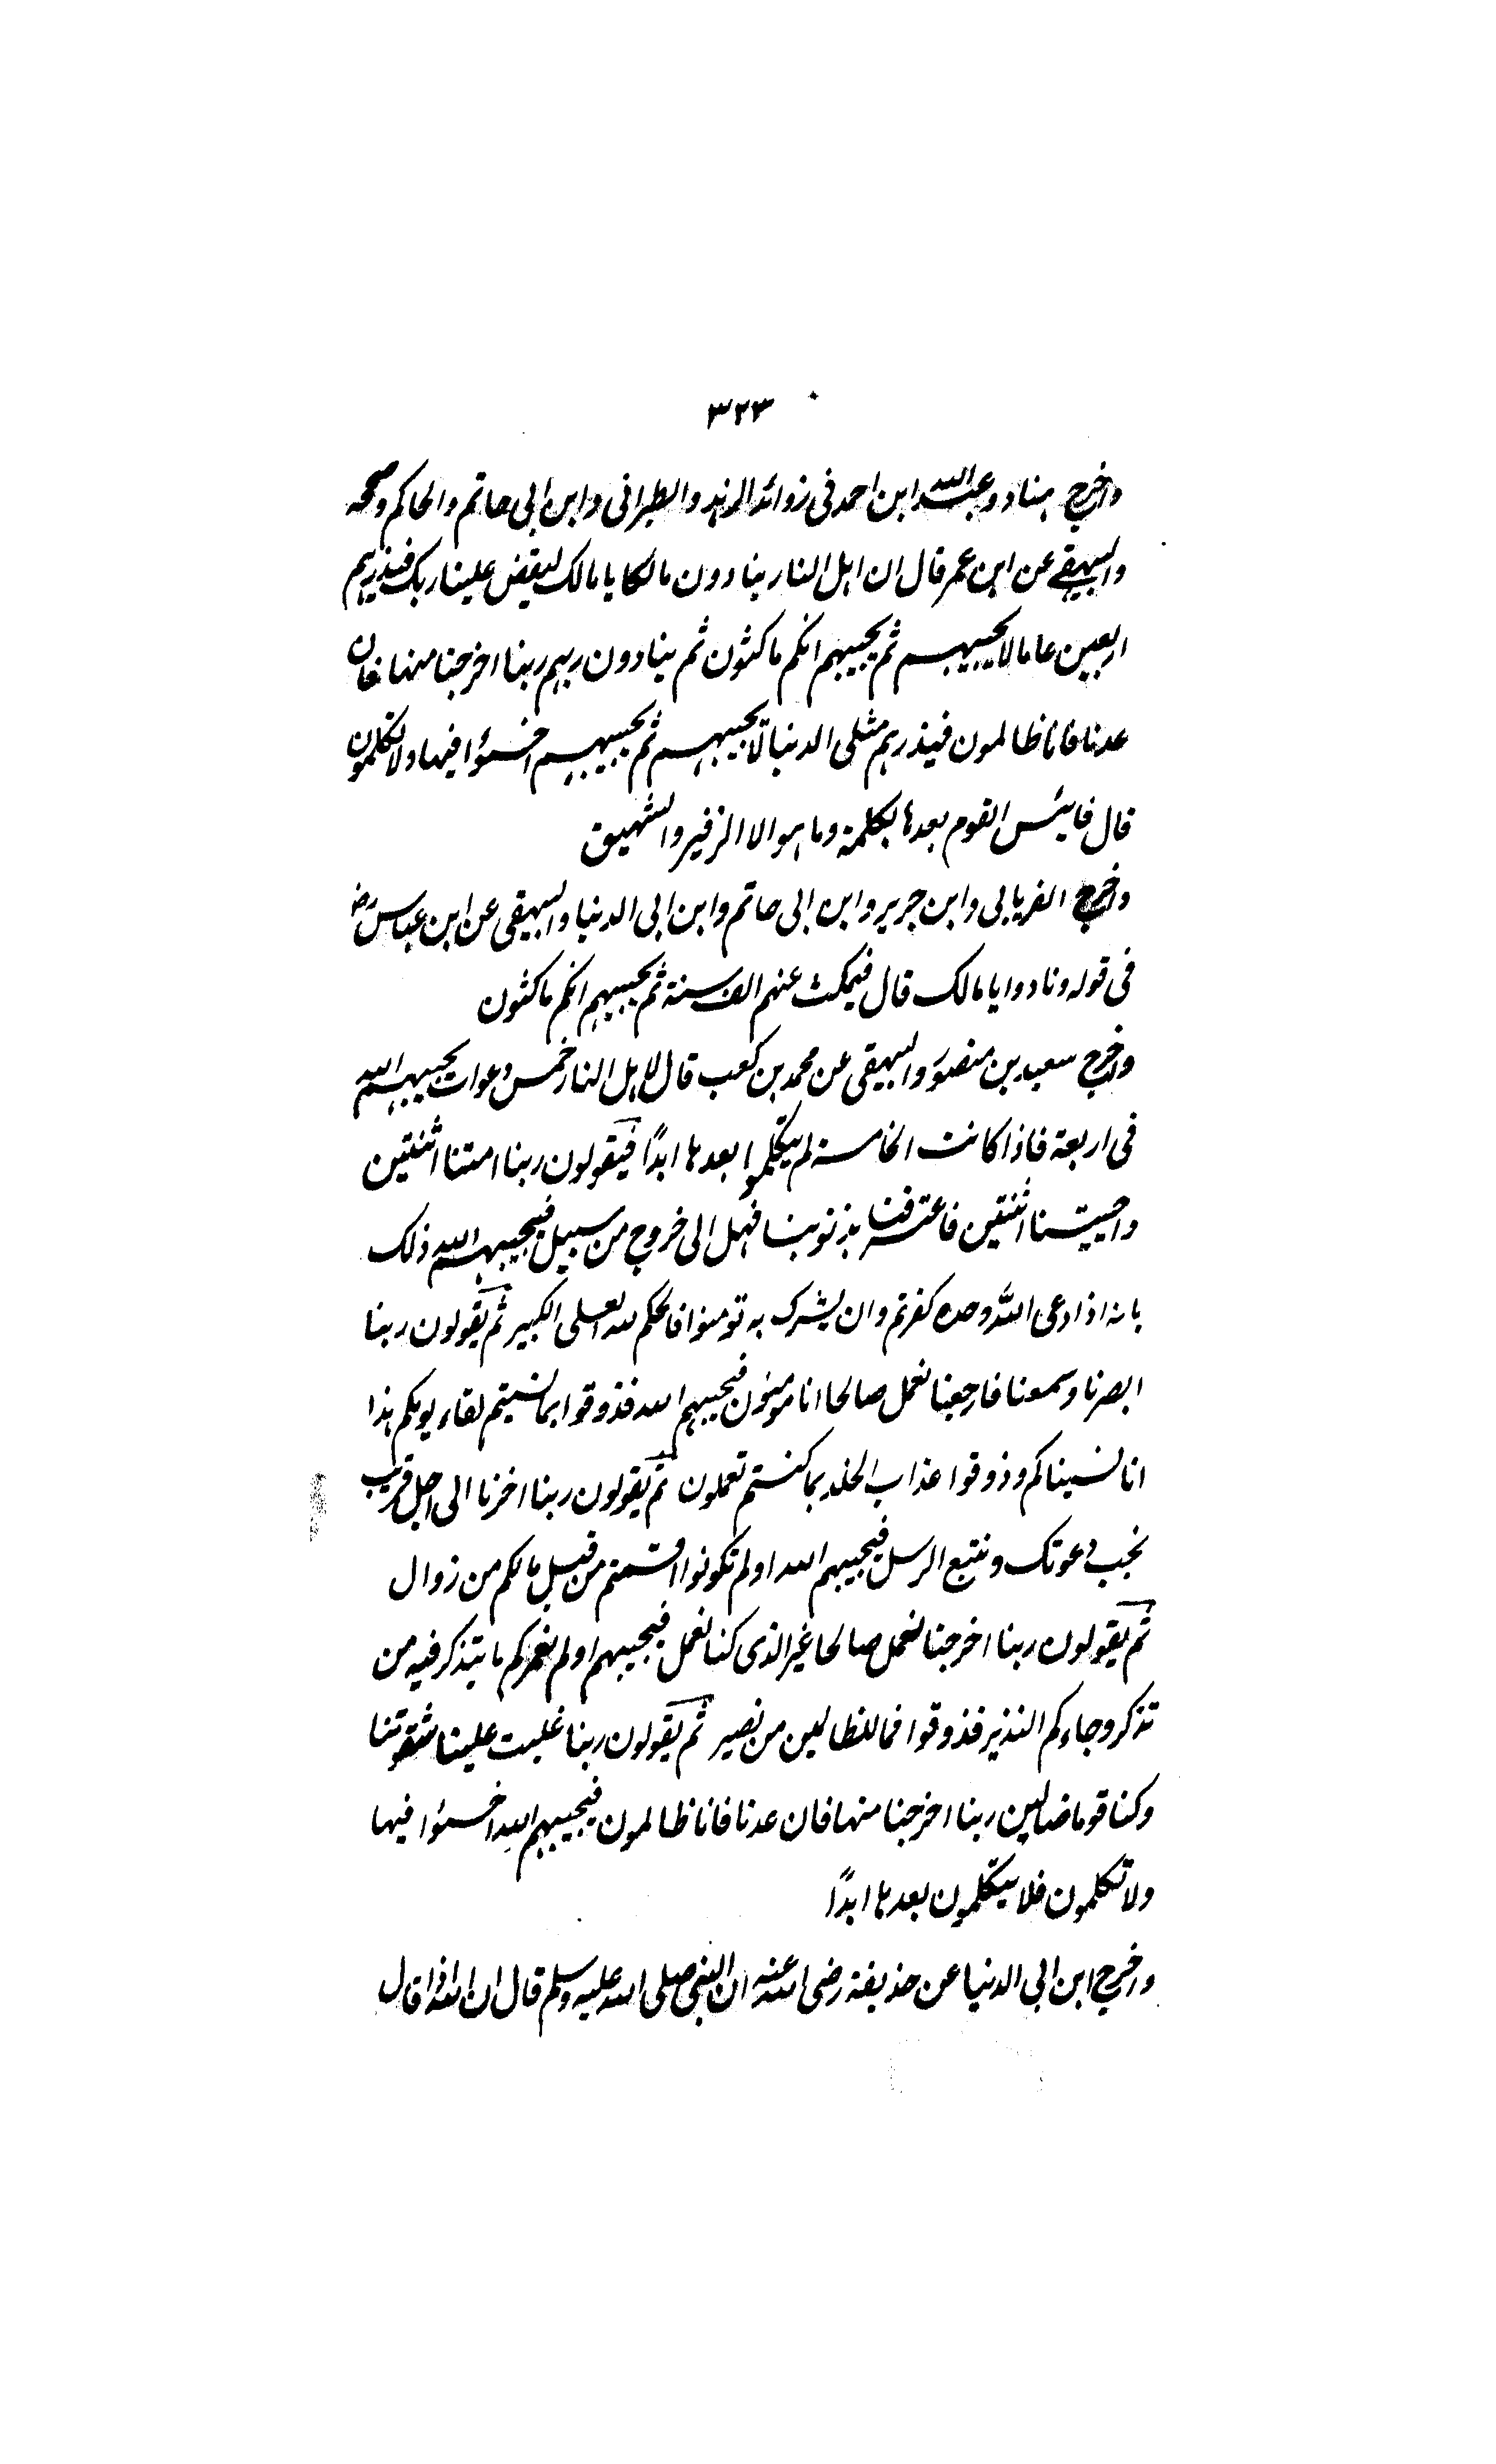 ٣٢٣
واخرج هناد وعبد الله ابن احمد فى زوائد الزهد والطبرانى وابن ابى حاتم والحاكم وصححه
والبيهقے عن ابن عمر قال ان اهل النار ينادون مالكا يا مالك ليقض علينا ربك فيذرهم
اربعين عاما لا يجيبهم ثم يجيبهم انكم ماكثون ثم ينادون ربهم ربنا اخرجنا منها فان
عدنا فانا ظالمون فيذرهم مثلى الدنيا لا يجيبهم ثم يجيبهم اخسؤا فيها ولا تكلمون
قال فايئس القوم بعدها بكلمة وما هو الا الزفير والشهيق
واخرج الفريابى وابن جرير وابن ابى حاتم وابن ابى الدنيا والبيهقى عن ابن عباس رض
فى قوله ونادوا يا مالك قال فيمكث عنهم الف سنة ثم يجيبهم انكم ماكثون
واخرج سعيد بن منصور والبيهقى عن محمد بن كعب قال لاهل النار خمس دعوات يجيبهم الله
فى اربعة فاذا كانت الخامسة لم يتكلموا بعدها ابدًا فيقولون ربنا امتنا اثنتين
واحييتنا اثنتين فاعترفنا بذنوبنا فهل الى خروج من سبيل فيجيبهم الله ذلك
بانه اذا دعى الله وحده كفرتم وان يشرك به تومنوا فالحكم لله العلى الكبير ثم يقولون ربنا
ابصرنا وسمعنا فارجعنا نعمل صالحا انا مومنون فيجيبهم الله فذوقوا بما نسيتم لقاء يومكم هذا
انا نسيناكم وذوقوا عذاب الخلد بما كنتم تعملون ثم يقولون ربنا اخرنا الى اجل قريب
نجب دعوتك ونتبع الرسل فيجيبهم الله اولم تكونوا اقسمتم من قبل مالكم من زوال
ثم يقولون ربنا اخرجنا نعمل صالحا غير الذى كنا نعمل فيجيبهم اولم نعمركم ما يتذكر فيه من
تذكر وجاءكم النذير فذوقوا فما للظالمين من نصير ثم يقولون ربنا غلبت علينا شقوتنا
وكنا قوما ضالين ربنا اخرجنا منها فان عدنا فانا ظالمون فيجيبهم الله اخسؤا فيها
ولا تكلمون فلا يتكلمون بعدها ابدًا
واخرج ابن ابى الدنيا عن حذيفة رضى الله عنه ان النبى صلى الله عليه وسلم قال ان الله اذا قال